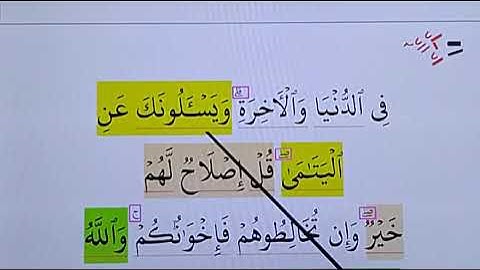 فِى ٱلدُّنْيَا وَٱلْـَٔاخِرَةِ وَيَسْـَٔلُونَكَ عَنِ
ٱلْيَتَـٰمَىٰ قُلْ إِصْلَاحٌ لَّهُمْ
خَيْرٌ وَإِن تُخَالِطُوهُمْ فَإِخْوَٰنُكُمْ وَٱللَّهُ